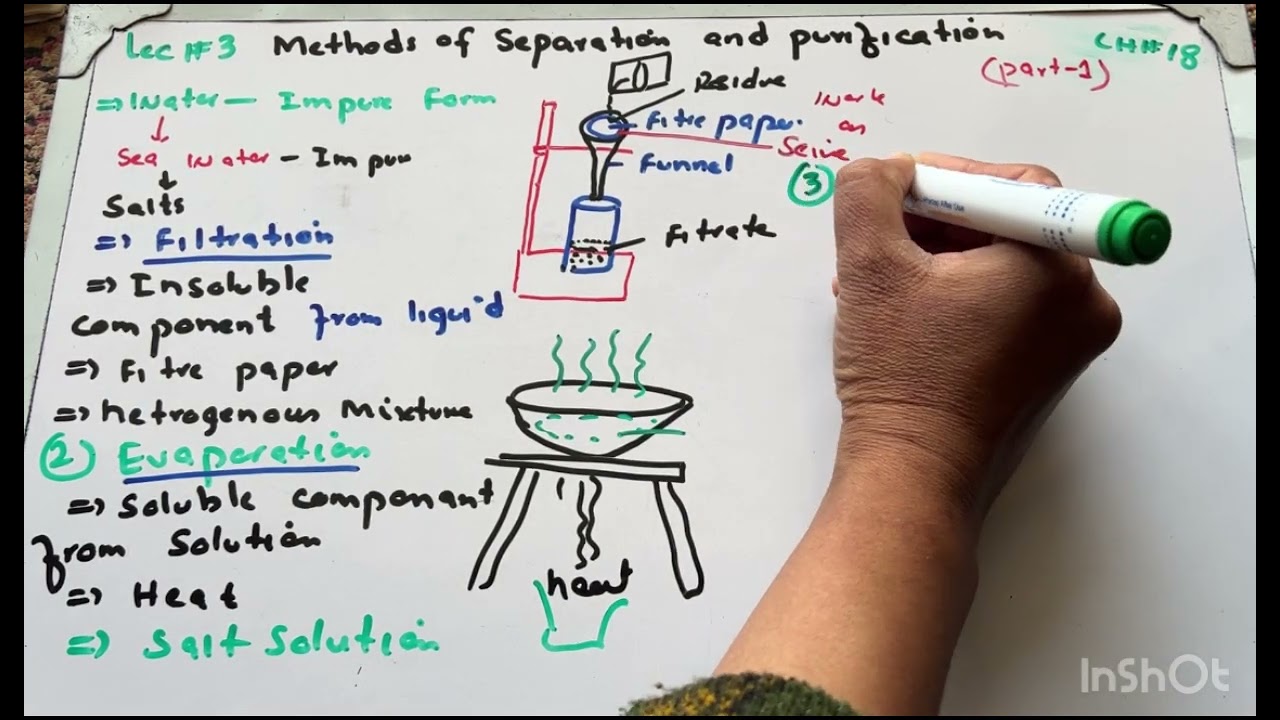 Lec # 3 Methods of Separation and purification CH#18
(part-1)
=> Water - Impure Form
Sea Water - Impure
Salts
=> Filtration
=> Insoluble
component from liquid
=> Filtre paper
=> hetrogenous Mixture
2) Evaporation
=> Soluble componant
from Solution
=> Heat
=> Salt Solution
Residue
Filtre paper.
Funnel
Work
on
Seive
Filtrate
heat
3
InShOt